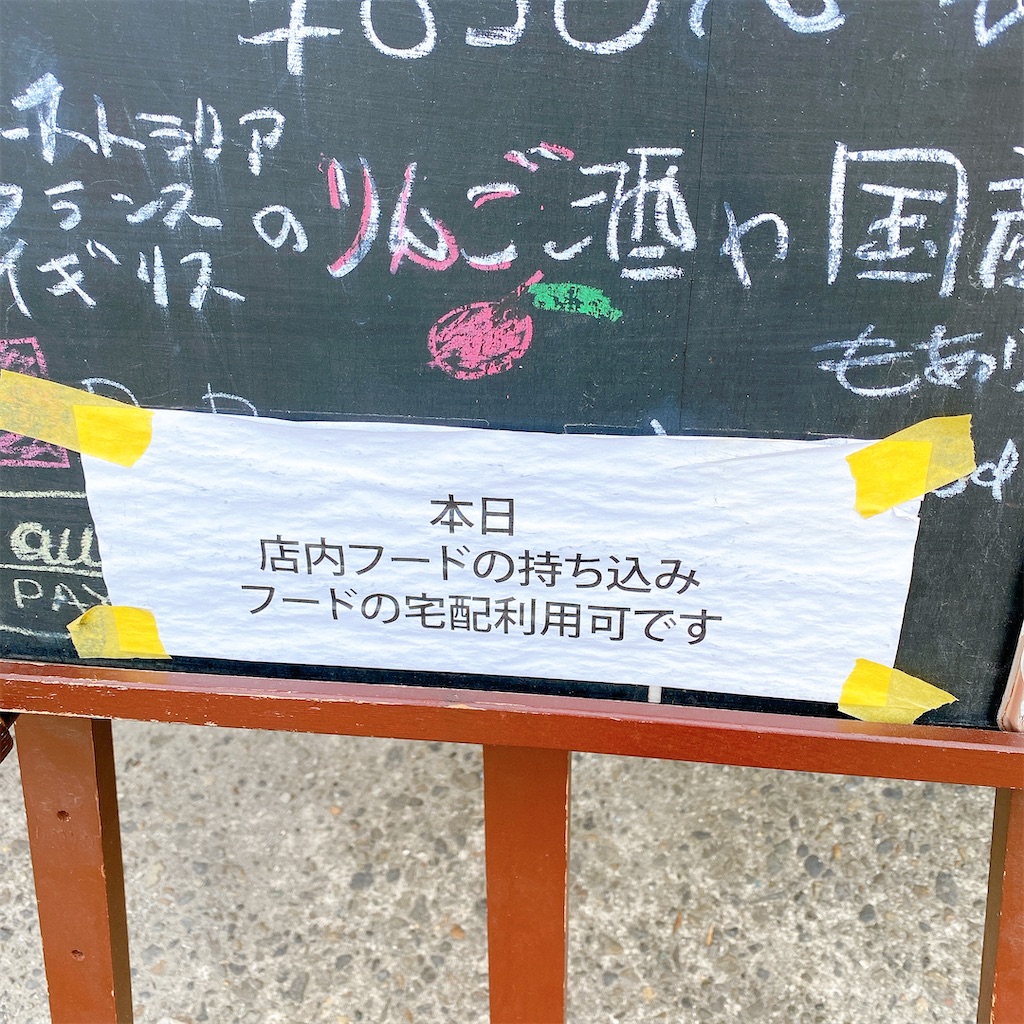 ーストラリア
フランス
イギリス
のりんご酒や国産
もあり
au
PAY
本日
店内フードの持ち込み
フードの宅配利用可です